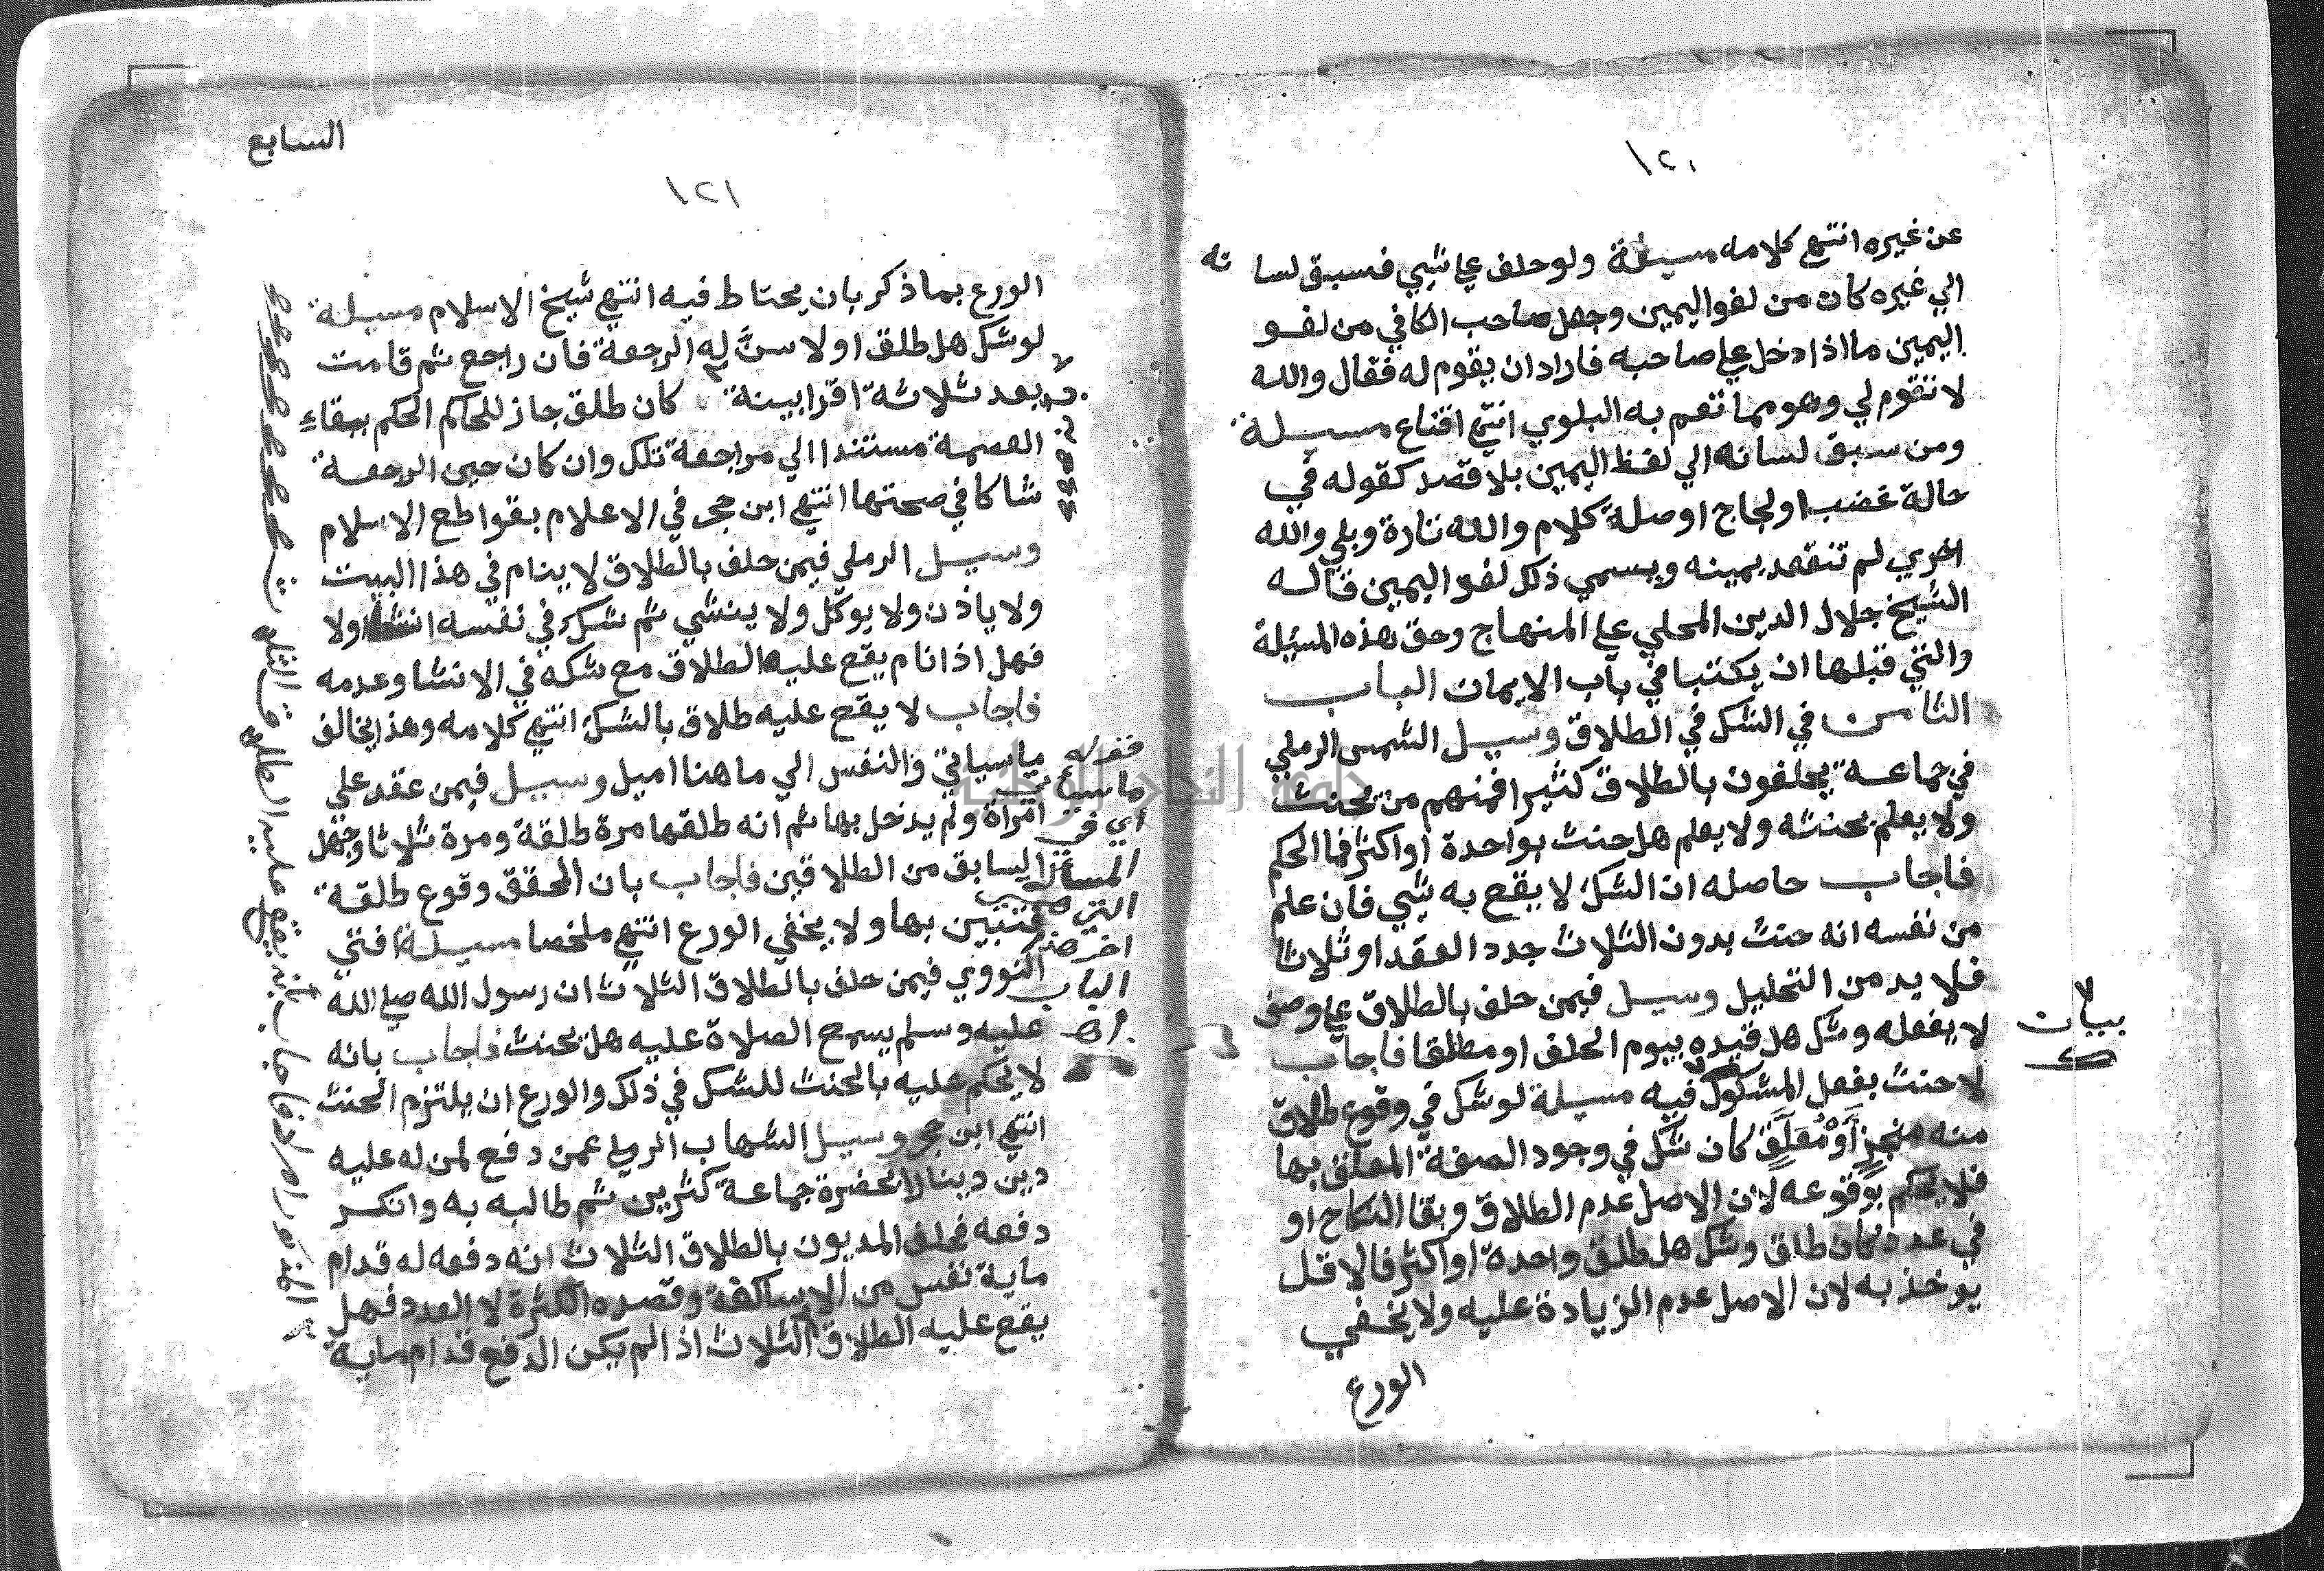 ١٢٠
عن غيره انتهي كلامه مسيلة ولو حلف علي شي فسبق لسا نه
الي غيره كان من لغو اليمين وجعل صاحب الكافي من لغو
اليمين ما اذا دخل علي صاحبه فاراد ان يقوم له فقال والله
لا تقوم لي وهو مما تعم به البلوي انتهي اقناع مسيلة
ومن سبق لسانه الي لفظ اليمين بلا قصد كقوله في
حالة غضب او لجاج او صلة كلام والله تارة وبلي والله
اخري لم تنعقد يمينه ويسمي ذلك لغو اليمين قاله
الشيخ جلال الدين المحلي علي المنهاج وحق هذه المسيلة
والتي قبلها ان يكتبا في باب الايمان الباب
الثامن في الشك في الطلاق وسيل الشمس الرملي
في جماعة يحلفون بالطلاق كثيرا فمنهم من يحنث
ولا يعلم بحنثه ولا يعلم هل حنث بواحدة او اكثر فما الحكم
فاجاب حاصله ان الشك لا يقع به شي فان علم
من نفسه انه حنث بدون الثلاث جدد العقد او ثلاثا
فلا بد من التحليل وسيل فيمن حلف بالطلاق علي وصف
لا يفعله وشك هل قيده بيوم الحلف او مطلقا فاجاب
لا حنث بفعل المشكوك فيه مسيلة لو شك في وقوع طلاق
منه منجز أو معلق كان شك في وجود الصفة المعلق بها
فلا يحكم بوقوعه لان الاصل عدم الطلاق وبقا النكاح او
في عدد كان طلق وشك هل طلق واحدة او اكثر فالاقل
يوخذ به لان الاصل عدم الزيادة عليه ولا يخفي
الورع
بيان
السابع
١٢١
الورع بما ذكر بان يحتاط فيه انتهي شيخ الاسلام مسيلة
لو شك هل طلق او لا سن له الرجعة فان راجع ثم قامت
بعد ثلاثة اقرا بينة كان طلق جاز للحاكم الحكم ببقاء
العصمة مستندا الي مراجعة تلك وان كان حين الرجعة
شاكا في صحتها انتهي ابن حجر في الاعلام بقواطع الاسلام
وسيل الرملي فيمن حلف بالطلاق لا ينام في هذا البيت
ولا ياذن ولا يوكل ولا ينشي ثم شك في نفسه انشا اولا
فهل اذا نام يقع عليه الطلاق مع شكه في الانشا وعدمه
فاجاب لا يقع عليه طلاق بالشك انتهي كلامه وهذا يخالف
ما سياتي والنفس الي ما هنا اميل وسيل فيمن عقد علي
امراة ولم يدخل بها ثم انه طلقها مرة طلقة ومرة ثلاثا وجهل
السابق من الطلاقين فاجاب بان المحقق وقوع طلقة
فتبين بها ولا يخفي الورع انتهي ملخصا مسيلة افتي
النووي فيمن حلف بالطلاق الثلاث ان رسول الله صلي الله
عليه وسلم يسمع الصلاة عليه هل يحنث فاجاب بانه
لا يحكم عليه بالحنث للشك في ذلك والورع ان يلتزم الحنث
انتهي ابن حجر وسيل الشهاب الرملي عمن دفع لمن له عليه
دين دينا لا بحضرة جماعة كثيرين ثم طالبه به وانكر
دفعه فحلف المديون بالطلاق الثلاث انه دفعه له قدام
ماية نفس من الاساكفة وقصده الكثرة لا العدد فهل
يقع عليه الطلاق الثلاث اذا لم يكن الدفع قدام ماية
فقوله
ما سياتي
اي في
المسالة
التي
اخر هذا
الباب